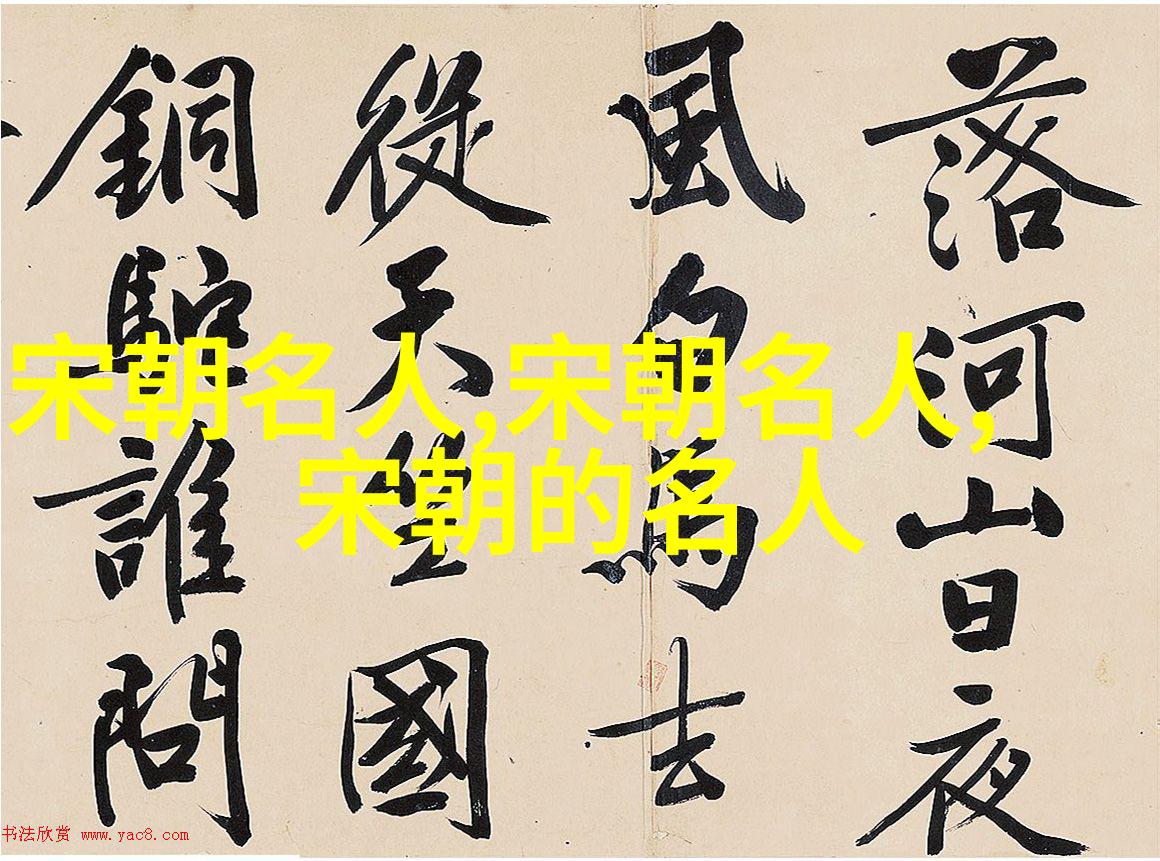 落河山日夜
風白馬去
從天竺國
銅駝誰問
宋朝名人,宋朝名人,
宋朝的名人
书法欣赏 www.yac8.com